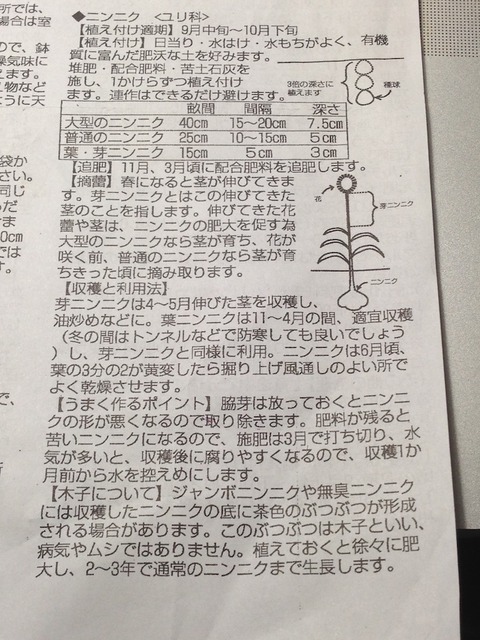 所では、
合は室
ので、鉢
燥気味に
えます。
し物など
ように天
◆ニンニク <ユリ科>
【植え付け適期】9月中旬～10月下旬
【植え付け】日当り・水はけ・水もちがよく、有機
質に富んだ肥沃な土を好みます。
堆肥・配合肥料・苦土石灰を
施し、1かけらずつ植え付け
ます。連作はできるだけ避けます。
3倍の深さに
植えます
種球
畝間 間隔 深さ
大型のニンニク 40cm 15～20cm 7.5cm
普通のニンニク 25cm 10～15cm 5cm
葉・芽ニンニク 15cm 5cm 3cm
【追肥】11月、3月頃に配合肥料を追肥します。
【摘蕾】春になると茎が伸びてきま
す。芽ニンニクとはこの伸びてきた
茎のことを指します。伸びてきた花
蕾や茎は、ニンニクの肥大を促す為
大型のニンニクなら茎が育ち、花が
咲く前、普通のニンニクなら茎が育
ちきった頃に摘み取ります。
花
芽ニンニク
ニンニク
【収穫と利用法】
芽ニンニクは4～5月伸びた茎を収穫し、
油炒めなどに。葉ニンニクは11～4月の間、適宜収穫
(冬の間はトンネルなどで防寒しても良いでしょう
)し、芽ニンニクと同様に利用。ニンニクは6月頃、
葉の3分の2が黄変したら掘り上げ風通しのよい所で
よく乾燥させます。
【うまく作るポイント】脇芽は放っておくとニンニ
クの形が悪くなるので取り除きます。肥料が残ると
苦いニンニクになるので、施肥は3月で打ち切り、水
気が多いと、収穫後に腐りやすくなるので、収穫1か
月前から水を控えめにします。
【木子について】ジャンボニンニクや無臭ニンニク
には収穫したニンニクの底に茶色のぶつぶつが形成
される場合があります。このぶつぶつは木子といい、
病気やムシではありません。植えておくと徐々に肥
大し、2～3年で通常のニンニクまで生長します。